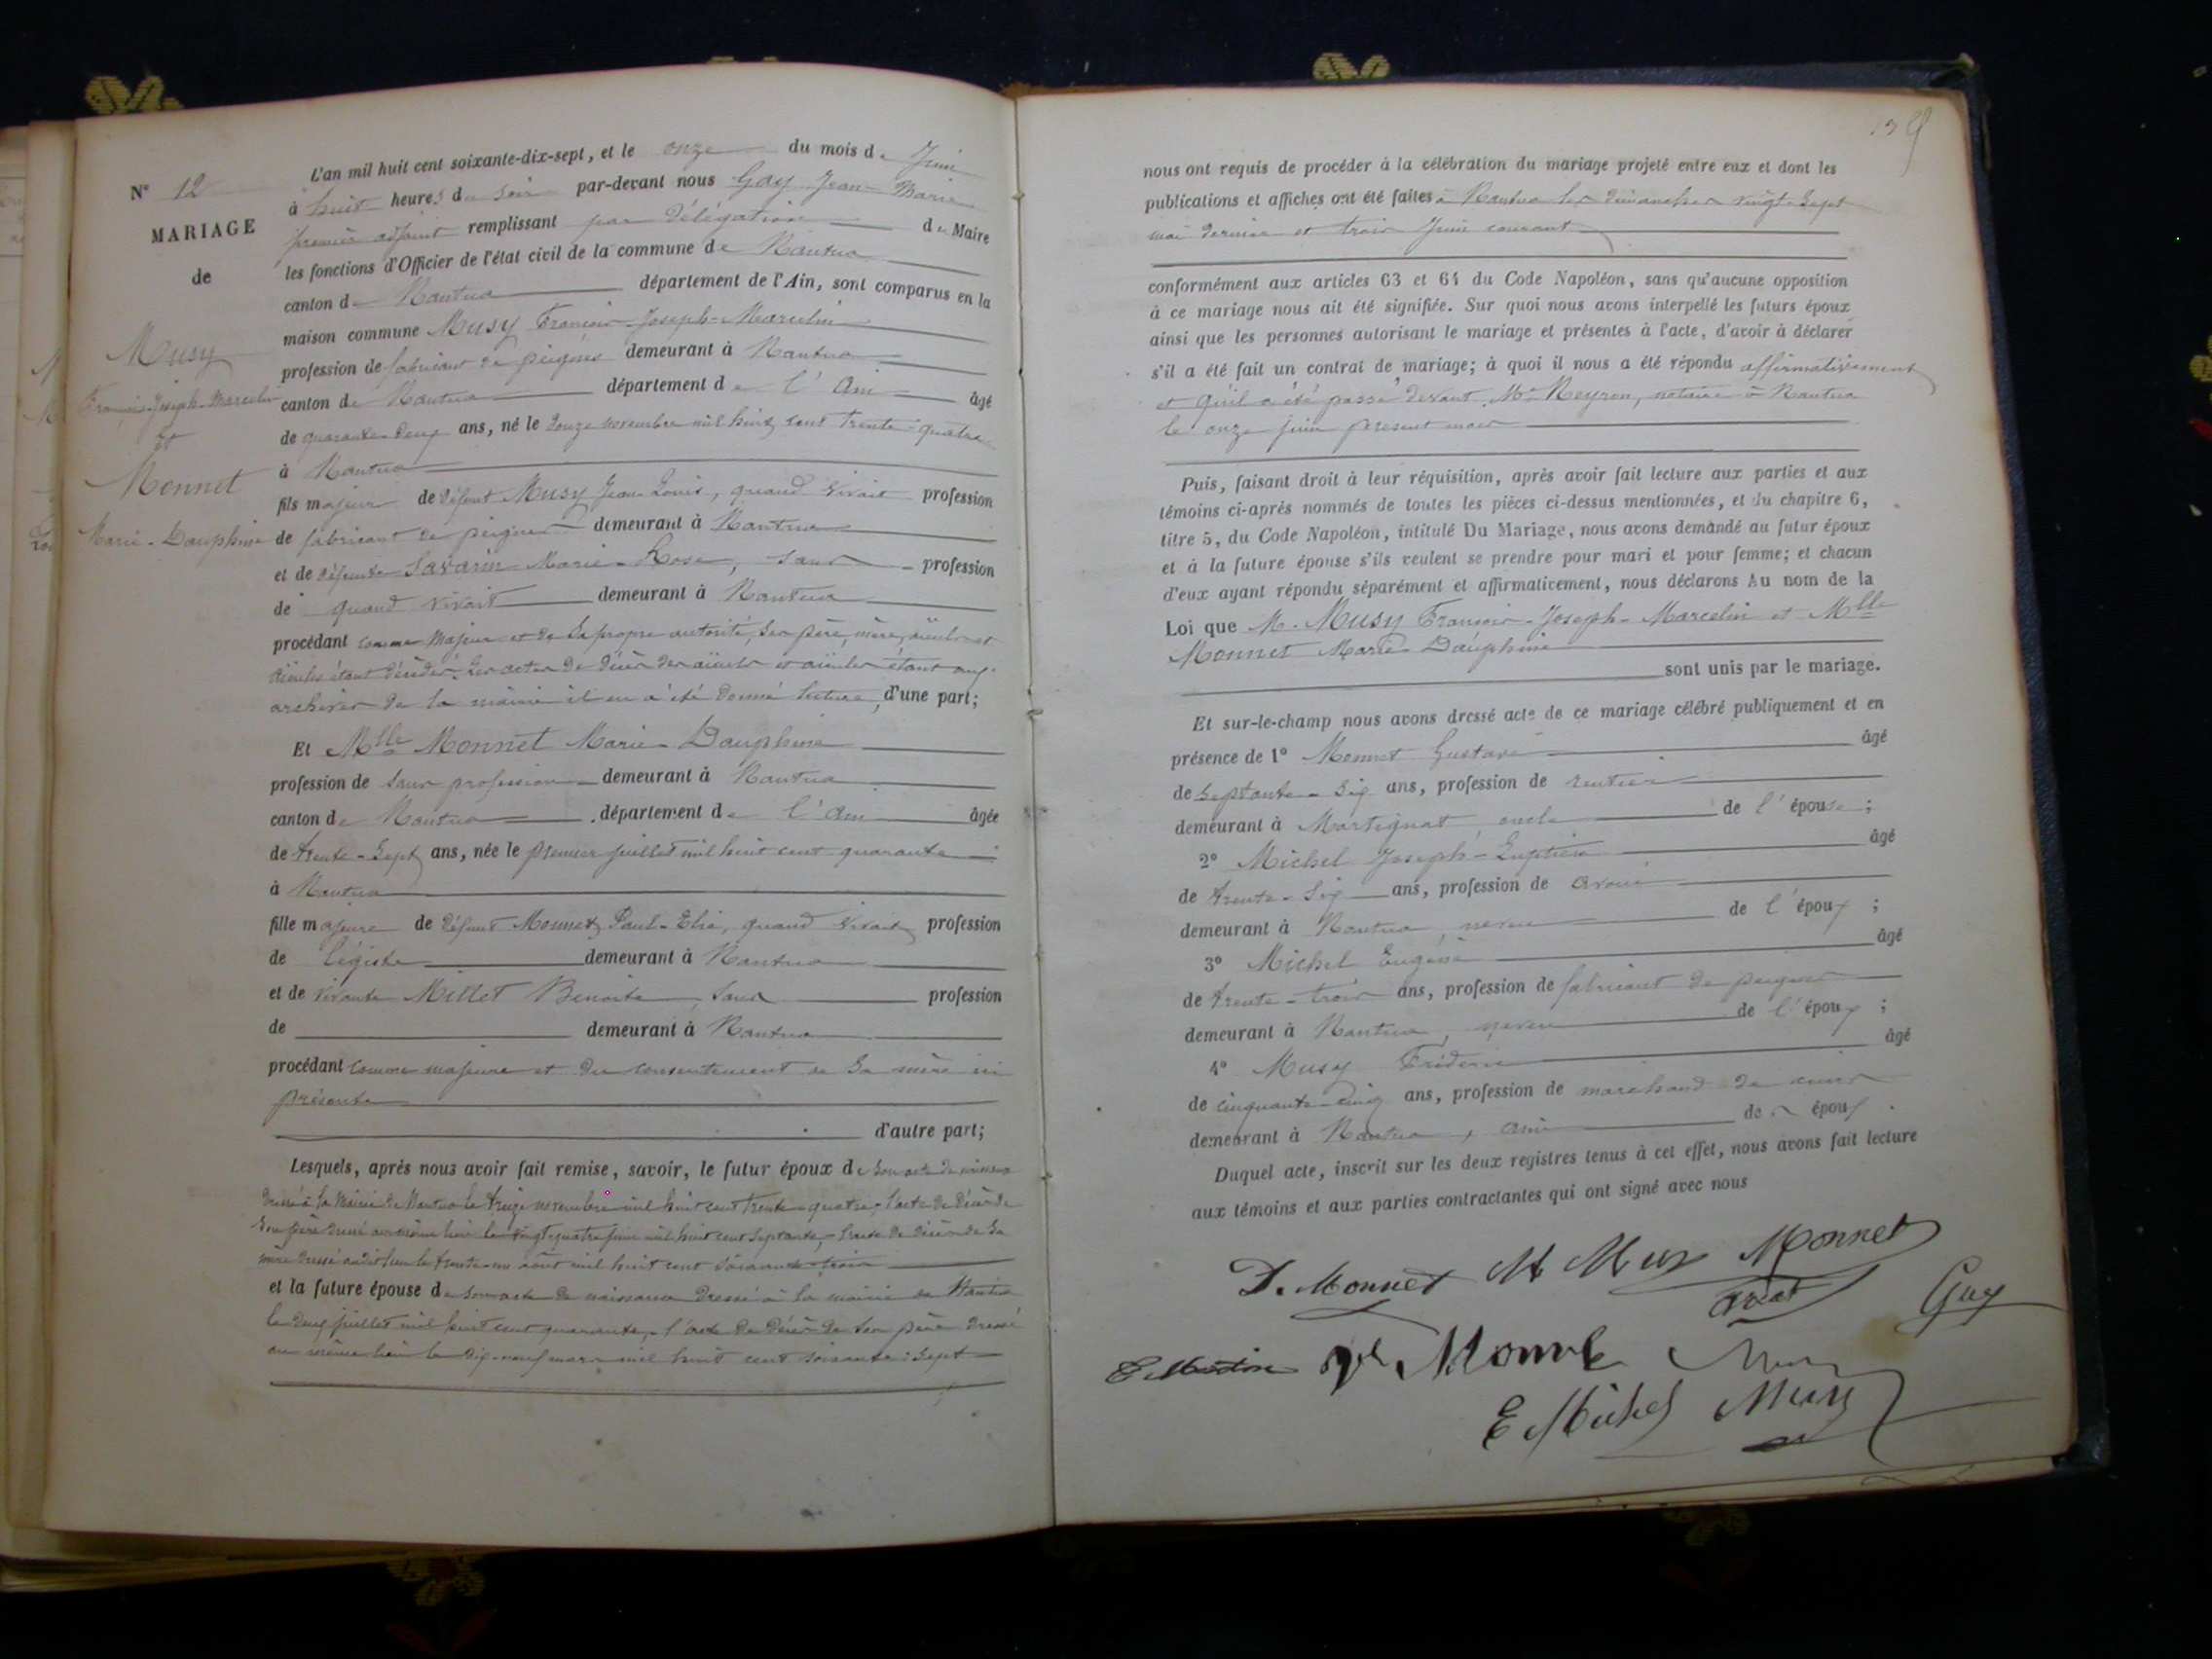 N° 12
MARIAGE
de
Musy
François-Joseph-Marcelin
et
Monnet
Marie-Dauphine
L'an mil huit cent soixante-dix-sept, et le onze du mois de Juin
à huit heures du soir par-devant nous Gay Jean-Marie
premier adjoint remplissant par délégation de Maire
les fonctions d'Officier de l'état civil de la commune de Nantua
canton de Nantua département de l'Ain, sont comparus en la
maison commune Musy François-Joseph-Marcelin
profession de fabricant de peignes demeurant à Nantua
canton de Nantua département de l'Ain âgé
de quarante-deux ans, né le douze novembre mil huit cent trente-quatre
à Nantua
fils majeur de défunt Musy Jean-Louis, quand vivait profession
de fabricant de peignes demeurant à Nantua
et de défunte Savarin Marie-Rose, sans profession
de quand vivait demeurant à Nantua
procédant comme majeur et de sa propre autorité, ses père, mère, aïeuls et
aïeules étant décédés. Les actes de décès des aïeuls et aïeules étant aux
archives de la mairie il en a été donné lecture, d'une part;
Et Mlle Monnet Marie-Dauphine
profession de sans profession demeurant à Nantua
canton de Nantua département de l'Ain âgée
de trente-sept ans, née le premier juillet mil huit cent quarante
à Nantua
fille majeure de défunt Monnet Paul-Elie, quand vivait profession
de légiste demeurant à Nantua
et de vivante Millet Benoite, sans profession
de demeurant à Nantua
procédant comme majeure et du consentement de sa mère ici
présente
d'autre part;
Lesquels, après nous avoir fait remise, savoir, le futur époux de son acte de naissance
dressé à la Mairie de Nantua le treize novembre mil huit cent trente-quatre, l'acte de décès de
son père dressé au même lieu le vingt-quatre juin mil huit cent septante, l'acte de décès de sa
mère dressé audit lieu le trente-un août mil huit cent soixante-trois
et la future épouse de son acte de naissance dressé à la mairie de Nantua
le deux juillet mil huit cent quarante, l'acte de décès de son père dressé
au même lieu le dix-neuf mars mil huit cent soixante-sept
nous ont requis de procéder à la célébration du mariage projeté entre eux et dont les
publications et affiches ont été faites à Nantua les dimanches vingt-sept
mai dernier et trois Juin courant
conformément aux articles 63 et 64 du Code Napoléon, sans qu'aucune opposition
à ce mariage nous ait été signifiée. Sur quoi nous avons interpellé les futurs époux
ainsi que les personnes autorisant le mariage et présentes à l'acte, d'avoir à déclarer
s'il a été fait un contrat de mariage; à quoi il nous a été répondu affirmativement
et qu'il a été passé devant Me Neyron, notaire à Nantua
le onze juin présent mois
Puis, faisant droit à leur réquisition, après avoir fait lecture aux parties et aux
témoins ci-après nommés de toutes les pièces ci-dessus mentionnées, et du chapitre 6,
titre 5, du Code Napoléon, intitulé Du Mariage, nous avons demandé au futur époux
et à la future épouse s'ils veulent se prendre pour mari et pour femme; et chacun
d'eux ayant répondu séparément et affirmativement, nous déclarons Au nom de la
Loi que M. Musy François-Joseph-Marcelin et Mlle
Monnet Marie-Dauphine
sont unis par le mariage.
Et sur-le-champ nous avons dressé acte de ce mariage célébré publiquement et en
présence de 1° Monnet Gustave âgé
de septante-six ans, profession de rentier
demeurant à Martignat, oncle de l'épouse;
2° Michel Joseph âgé
de trente-six ans, profession de avoué
demeurant à Nantua, neveu de l'époux;
3° Michel Eugène âgé
de trente-trois ans, profession de fabricant de peignes
demeurant à Nantua, neveu de l'époux;
4° Musy Frédéric âgé
de cinquante-cinq ans, profession de marchand de cuirs
demeurant à Nantua, ami de époux.
Duquel acte, inscrit sur les deux registres tenus à cet effet, nous avons fait lecture
aux témoins et aux parties contractantes qui ont signé avec nous
D. Monnet M Musy Monnet
Gay
Monnet
E Michel Musy